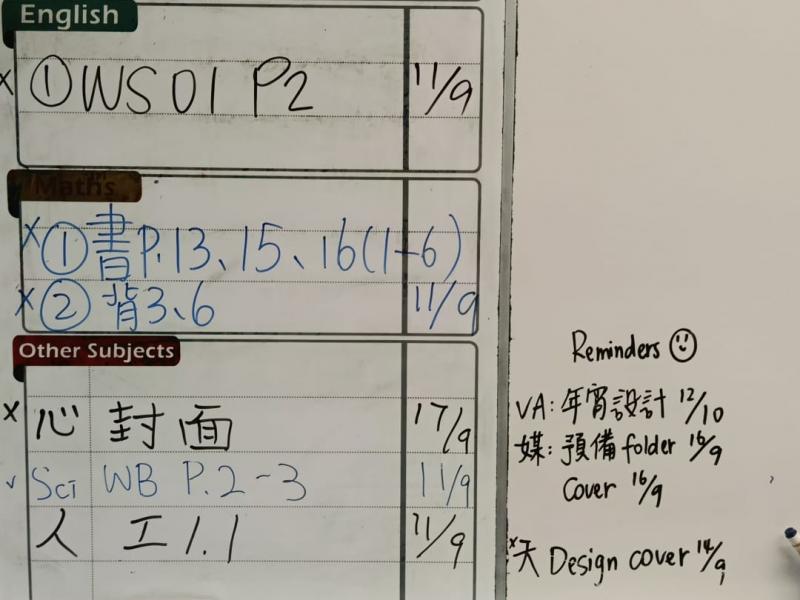 English
x ①WS01 P2 11/9
Maths
x ①書P.13、15、16(1-6)
x ②背3、6 11/9
Other Subjects
x 心 封面 17/9
✓ Sci WB P.2-3 11/9
人 工1.1 11/9
Reminders ☺
VA: 年宵設計 12/10
媒: 預備folder 16/9
Cover 16/9
x天 Design cover 14/9